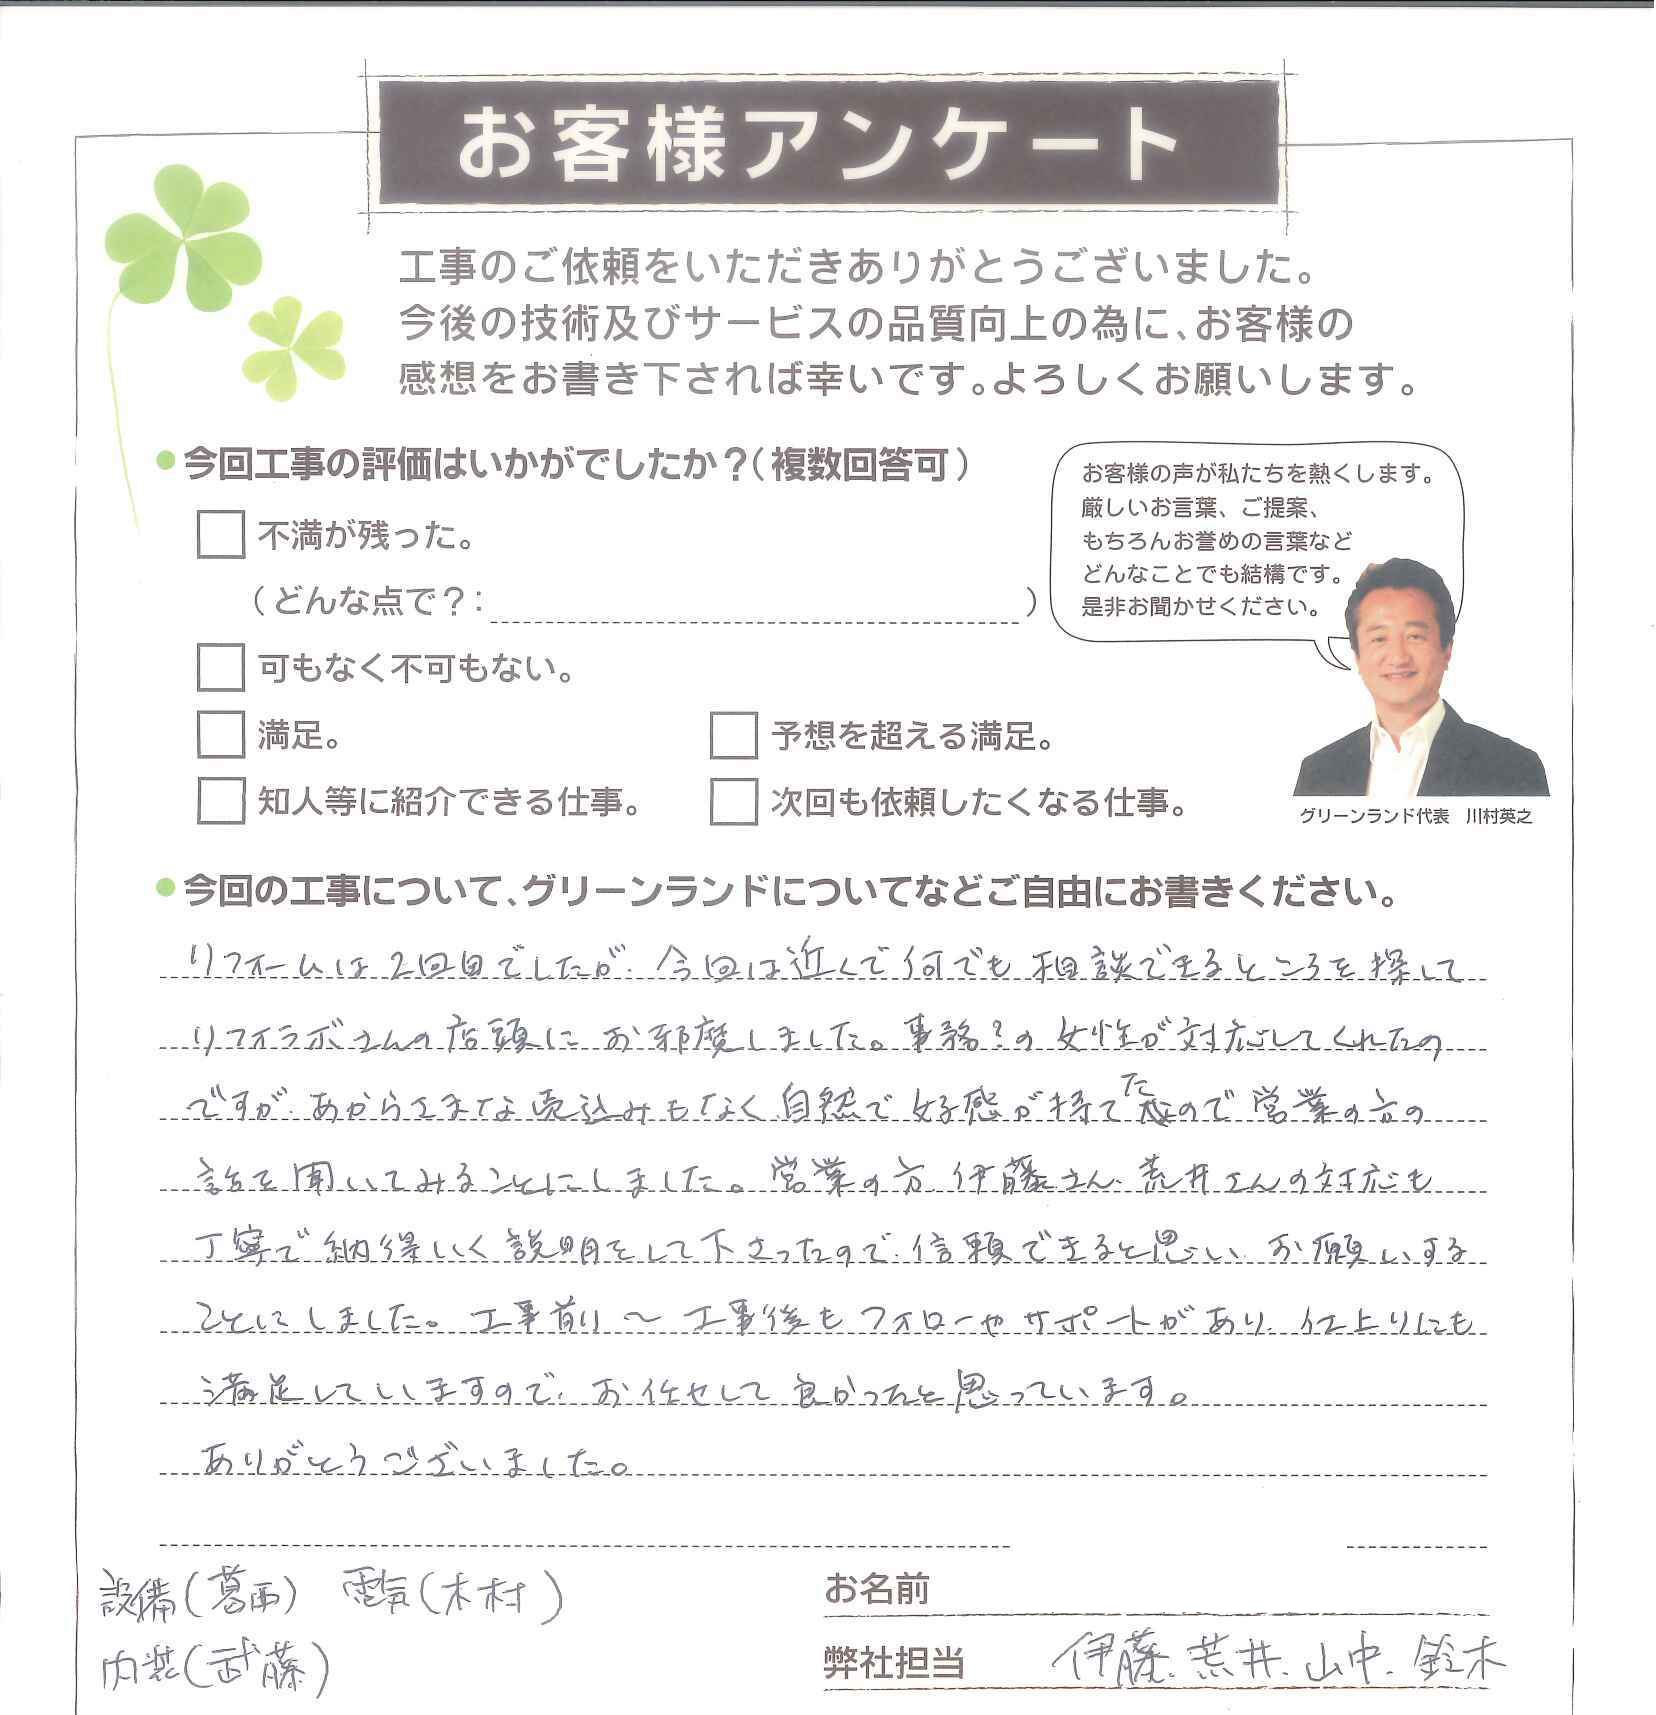 お客様アンケート
工事のご依頼をいただきありがとうございました。
今後の技術及びサービスの品質向上の為に、お客様の
感想をお書き下されば幸いです。よろしくお願いします。
今回工事の評価はいかがでしたか?(複数回答可)
不満が残った。
(どんな点で?: )
可もなく不可もない。
満足。
予想を超える満足。
知人等に紹介できる仕事。
次回も依頼したくなる仕事。
お客様の声が私たちを熱くします。
厳しいお言葉、ご提案、
もちろんお誉めの言葉など
どんなことでも結構です。
是非お聞かせください。
グリーンランド代表 川村英之
今回の工事について、グリーンランドについてなどご自由にお書きください。
リフォームは2回目でしたが、今回は近くで何でも相談できるところを探して
リフォラボさんの店頭にお邪魔しました。事務?の女性が対応してくれたの
ですが、あからさまな売込みもなく自然で好感が持てたので営業の方の
話を聞いてみることにしました。営業の方、伊藤さん、荒井さんの対応も
丁寧で納得いく説明をして下さったので、信頼できると思い、お願いする
ことにしました。工事前〜工事後もフォローやサポートがあり、仕上りにも
満足していますので、お任せして良かったと思っています。
ありがとうございました。
設備(葛西) 電気(木村)
内装(武藤)
お名前
弊社担当 伊藤、荒井、山中、鈴木